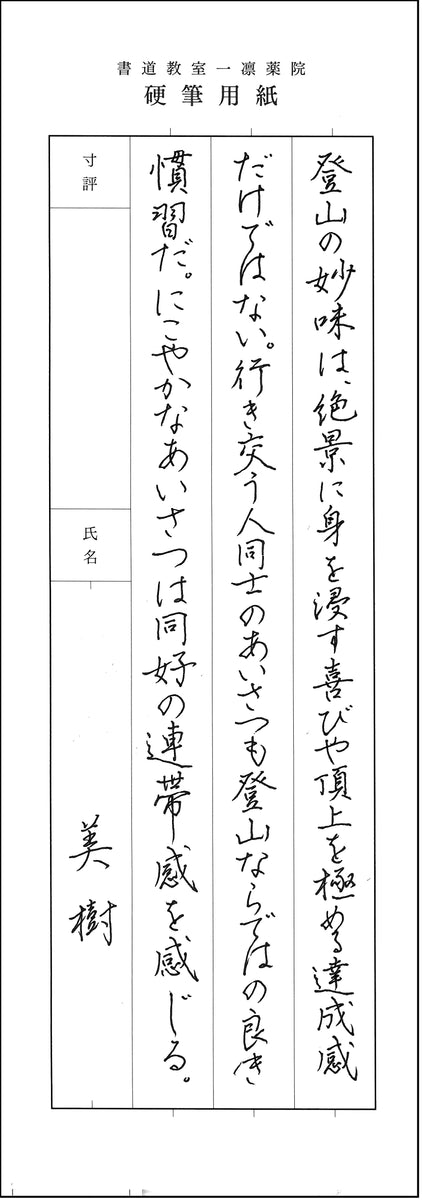 書道教室一凛薬院
硬筆用紙
登山の妙味は、絶景に身を浸す喜びや頂上を極める達成感
だけではない。行き交う人同士のあいさつも登山ならではの良き
慣習だ。にこやかなあいさつは同好の連帯感を感じる。
寸評
氏名
美樹